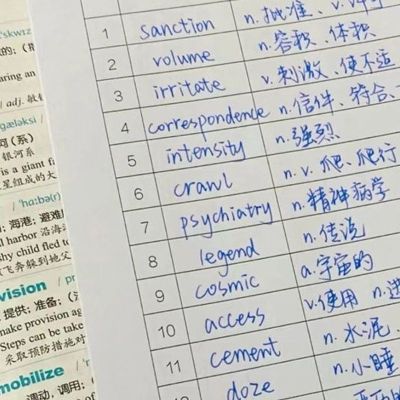 'skwɪz
aring an
/ adj. 敏
gæləksi /
河(系)
银河系
is a giant
星组成的大
/ 'hɑːbə(r)
海港; 避难
harbor 沿海
shy child fled to
飞奔躲到她父
vision / p
提供; 准备;
make provision ag
Steps can be take
采取预防措施对
mobilize /
调动, 调用;
1 sanction n.批准、
2 volume n.容积、体积
3 irritate v.刺激、使不适
4 correspondence n.信件、符合、
5 intensity n.强烈
6 crawl n. v. 爬、爬行
7 psychiatry n.精神病学
8 legend n.传说
9 cosmic a.宇宙的
10 access v.使用 n.进
11 cement n.水泥、
12 doze n.小睡